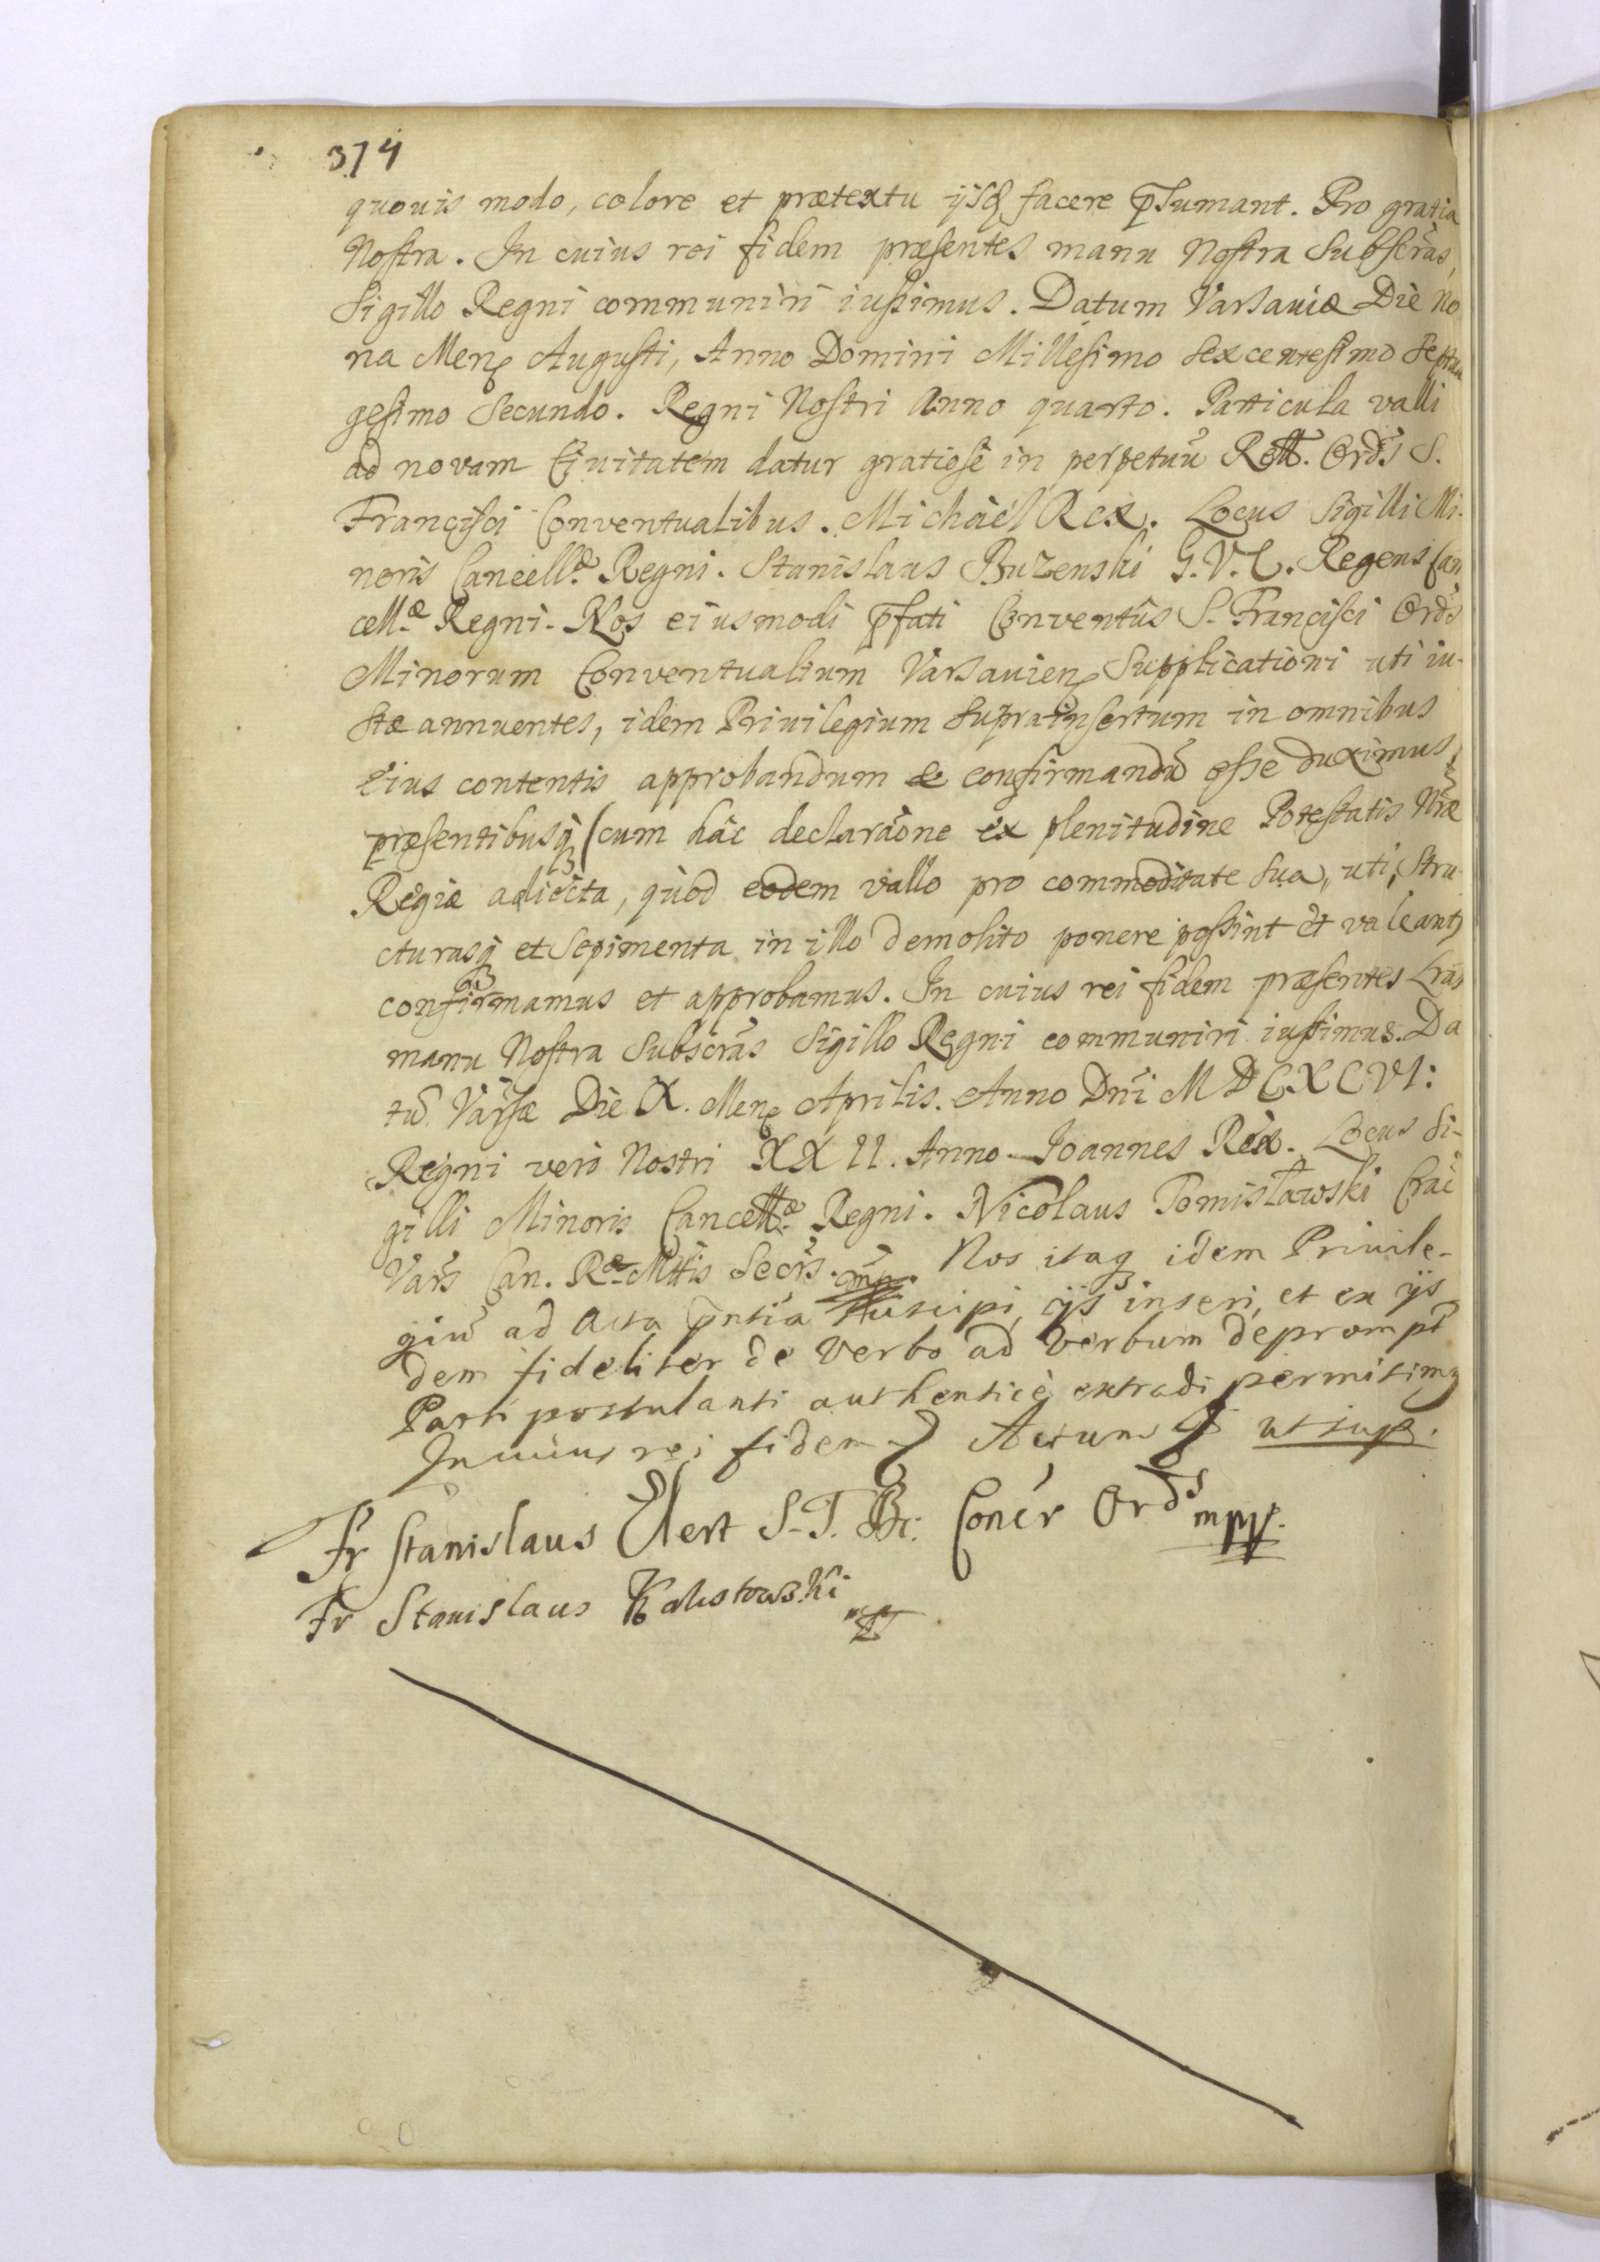 374
quouis modo, colore et prætextu ijsq́ facere p̄sumant. Pro gratia
Nostra. In cuius rei fidem præsentes manu Nostra Subscras,
Sigillo Regni communiri iussimus. Datum Varsaviæ Die No
na Mens Augusti, Anno Domini Millesimo Sexcentesimo Septua
gesimo Secundo. Regni Nostri Anno quarto. Particula valli
ad novam Civitatem datur gratiosè in perpetuũ Rell. Ordis S.
Francisci Conventualibus. Michaël Rex. Locus Sigilli Mi-
noris Cancellæ Regni. Stanislaus Buzenski G.V.C. Regens Can
cellæ Regni. Nos eiusmodi p̄fati Conventûs S. Francisci Ordis
Minorum Conventualium Varsaviens Supplicationi uti iu-
stæ annuentes, idem Privilegium Suprainsertum in omnibus
eius contentis approbandum & confirmandũ esse duximus,
præsentibusq́ (cum hâc declaraõne ex plenitudine Potestatis Nræ
Regiæ adiecta, quod eodem vallo pro commoditate sua, uti, Stru-
cturasq́ et Sepimenta in illo demolito ponere possint et valeant)
confirmamus et approbamus. In cuius rei fidem præsentes Lrãs
manu Nostra Subscrãs Sigillo Regni communiri iussimus. Da
tũ Varsæ Die X. Mens Aprilis. Anno Dni MDCXCVI:
Regni verò Nostri XXII. Anno. Ioannes Rex. Locus Si-
gilli Minoris Cancellæ Regni. Nicolaus Tomisławski Crac
Vars Can. Ræ Mttis Secrs. mp. Nos itaq idem Privile-
giũ ad Acta p̄ntia suscipi, ijs inseri, et ex ijs
dem fideliter de Verbo ad Verbum deprompt
Parti postulanti authenticè extradi permisimq
In cuius rei fidem Actum ut sup.
Fr Stanislaus Elert S. T. Br. Concr Ordis mpp.
Fr Stanislaus